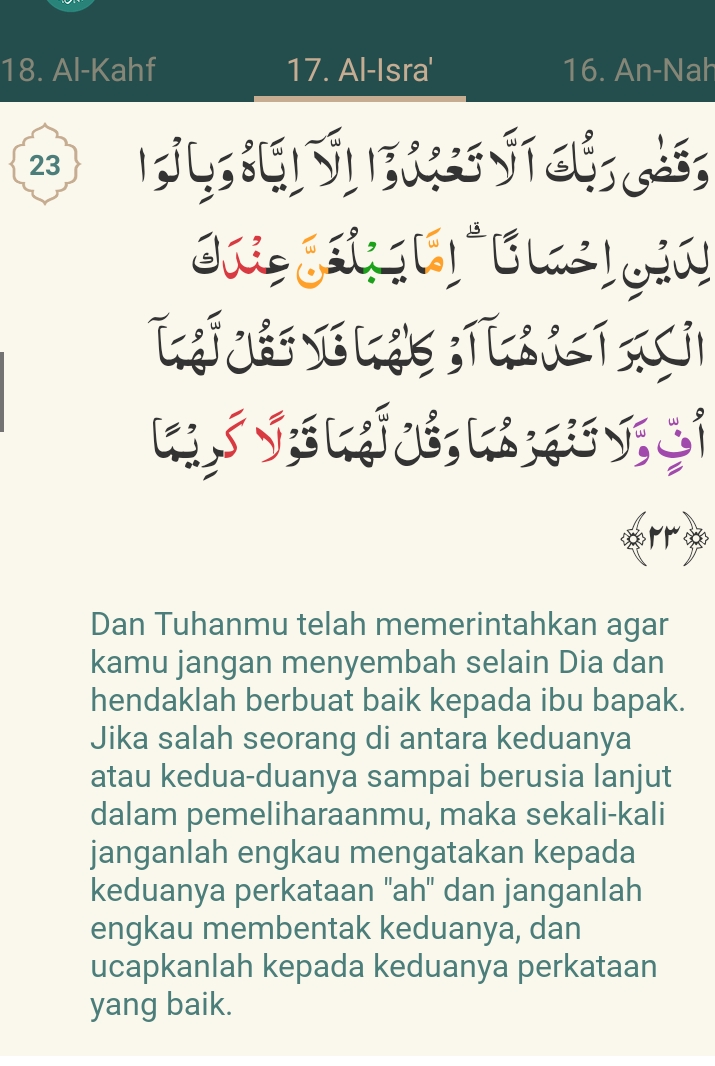 18. Al-Kahf 17. Al-Isra' 16. An-Nah
23
وَقَضٰى رَبُّكَ اَلَّا تَعْبُدُوْٓا اِلَّآ اِيَّاهُ وَبِالْوَا
لِدَيْنِ اِحْسَانًاۗ اِمَّا يَبْلُغَنَّ عِنْدَكَ
الْكِبَرَ اَحَدُهُمَآ اَوْ كِلٰهُمَا فَلَا تَقُلْ لَّهُمَآ
اُفٍّ وَّلَا تَنْهَرْهُمَا وَقُلْ لَّهُمَا قَوْلًا كَرِيْمًا
﴿٢٣﴾
Dan Tuhanmu telah memerintahkan agar
kamu jangan menyembah selain Dia dan
hendaklah berbuat baik kepada ibu bapak.
Jika salah seorang di antara keduanya
atau kedua-duanya sampai berusia lanjut
dalam pemeliharaanmu, maka sekali-kali
janganlah engkau mengatakan kepada
keduanya perkataan "ah" dan janganlah
engkau membentak keduanya, dan
ucapkanlah kepada keduanya perkataan
yang baik.